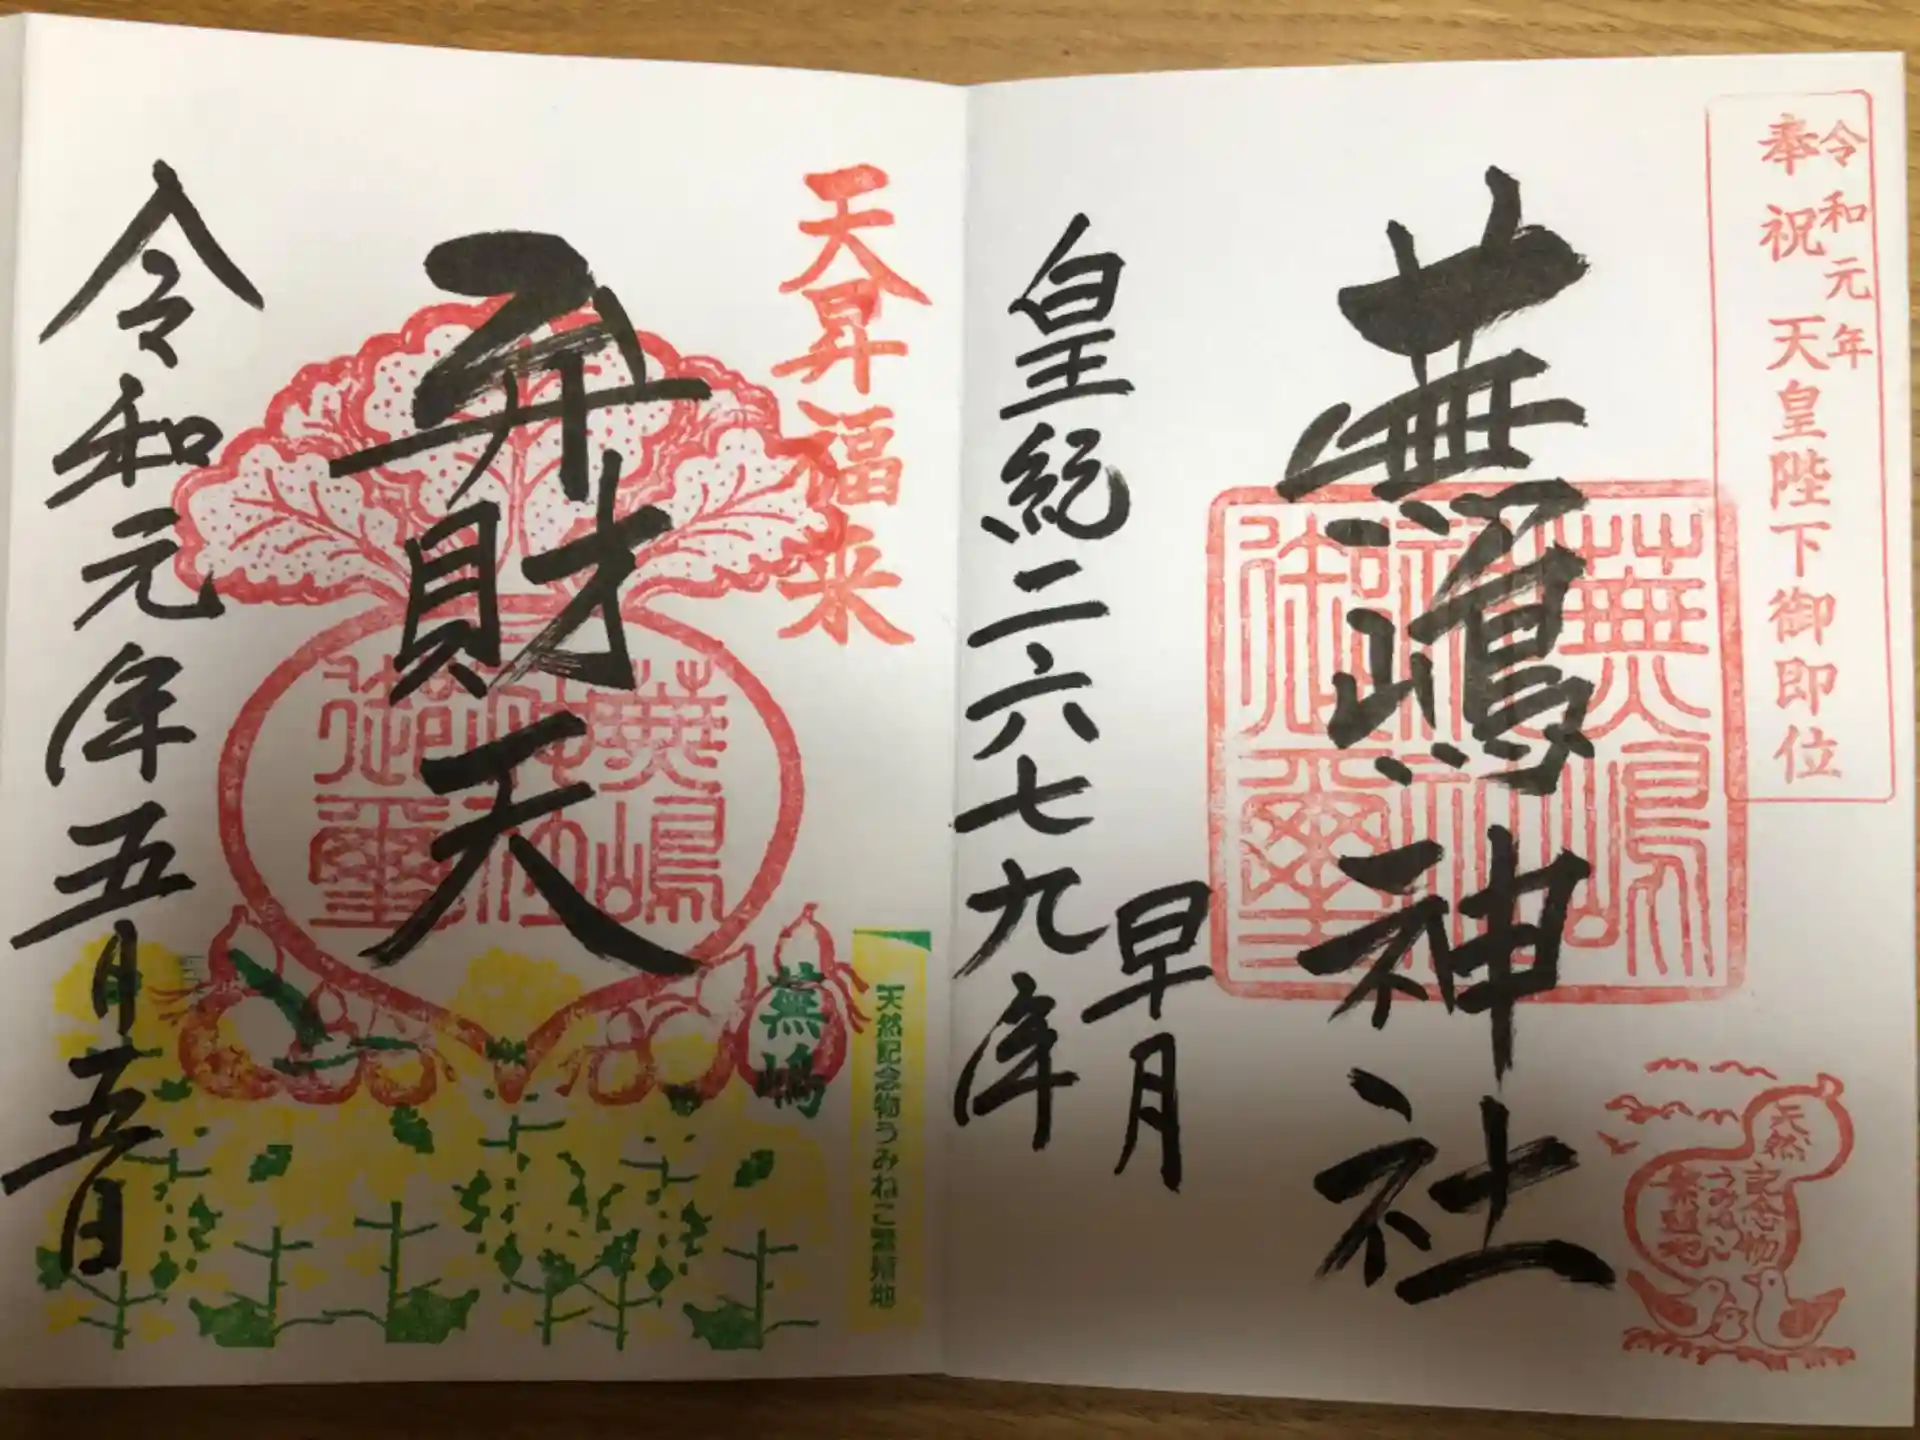 令和元年
奉祝 天皇陛下御即位
蕪嶋神社
蕪嶋神社御璽
早月
皇紀二六七九年
天然
記念物
うみねこ
繁殖地
天昇福来
弁財天
蕪嶋神社御璽
令和元年五月五日
蕪嶋
天然記念物うみねこ繁殖地